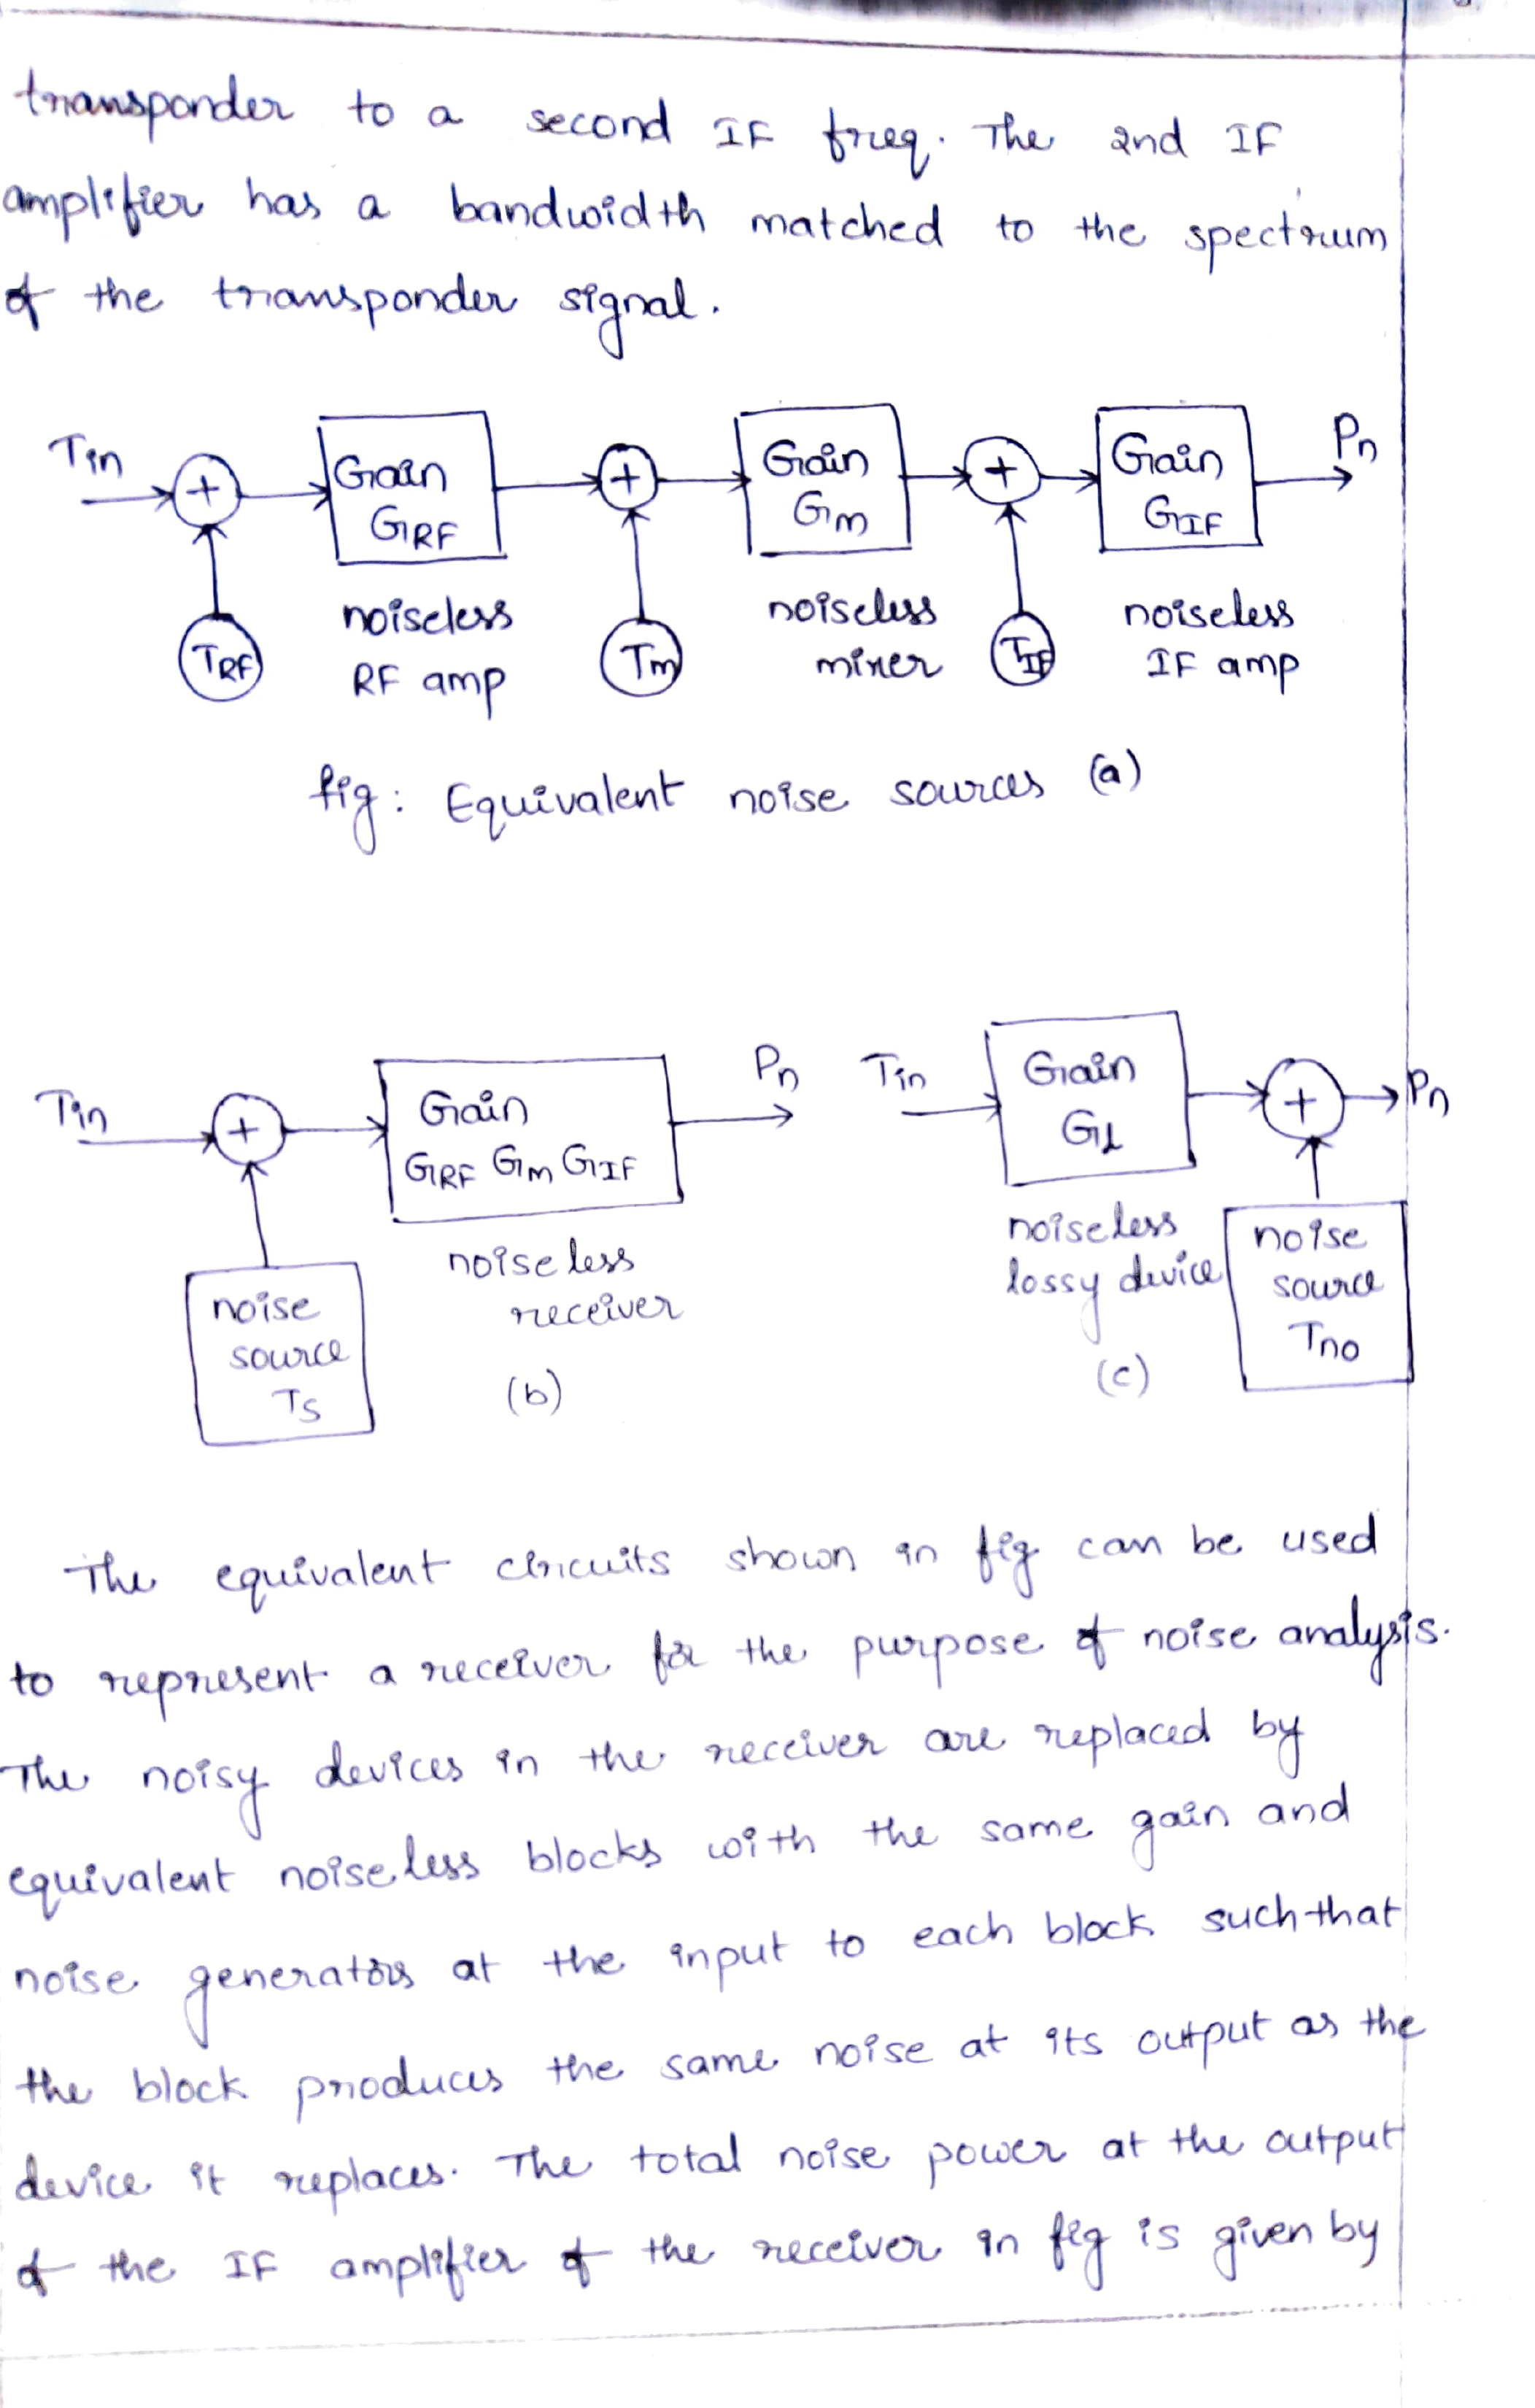 transponder to a second IF freq. The 2nd IF
amplifier has a bandwidth matched to the spectrum
of the transponder signal.
Tin + Gain GRF + Gain Gm + Gain GIF Pn
TRF noiseless RF amp Tm noiseless mixer TIF noiseless IF amp
fig: Equivalent noise sources (a)
Tin + Gain GRF Gm GIF Pn
noise source Ts
noiseless receiver
(b)
Tin Gain Gl + Pn
noiseless lossy device
noise source Tno
(c)
The equivalent circuits shown in fig can be used
to represent a receiver for the purpose of noise analysis.
The noisy devices in the receiver are replaced by
equivalent noiseless blocks with the same gain and
noise generators at the input to each block such that
the block produces the same noise at its output as the
device it replaces. The total noise power at the output
of the IF amplifier of the receiver in fig is given by